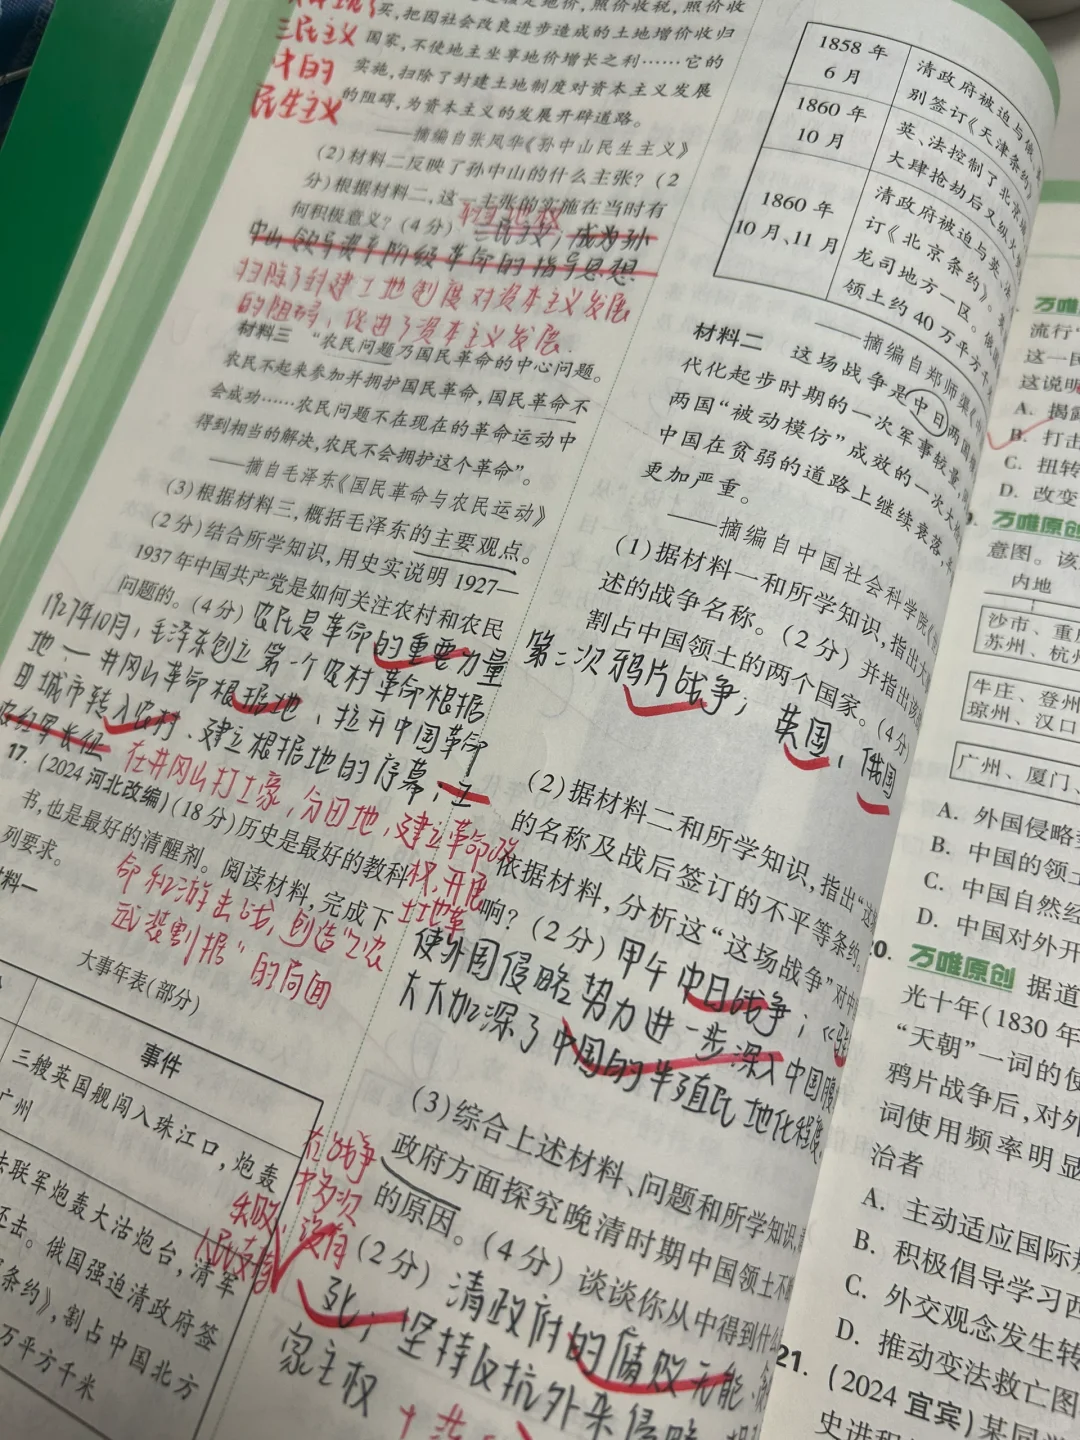 三民主义
中的
民生主义
买,把因社会改良进步造成的土地增价收归
国家,不使地主坐享地价增长之利……它的
实施,扫除了封建土地制度对资本主义发展
的阻碍,为资本主义的发展开辟道路。
——摘编自张凤华《孙中山民生主义》
(2)材料二反映了孙中山的什么主张?(2
分)根据材料二,这一主张的实施在当时有
何积极意义?(4分)
平均地权
三民主义;成为孙
中山领导资产阶级革命的指导思想
扫除了封建土地制度对资本主义发展
的阻碍,促进了资本主义发展.
材料三 “农民问题乃国民革命的中心问题。
农民不起来参加并拥护国民革命,国民革命不
会成功……农民问题不在现在的革命运动中
得到相当的解决,农民不会拥护这个革命”。
——摘自毛泽东《国民革命与农民运动》
(3)根据材料三,概括毛泽东的主要观点。
(2分)结合所学知识,用史实说明1927—
1937年中国共产党是如何关注农村和农民
问题的。(4分)
农民是革命的重要力量
1927年10月,毛泽东创立第一个农村革命根据
地——井冈山革命根据地,拉开中国革命
由城市转入农村、建立根据地的序幕;工
农红军长征
在井冈山打土豪,分田地,建立革命政
权,开展
土地革
命和游击战,创造“工农
武装割据”的局面
17.(2024河北改编)(18分)历史是最好的教科
书,也是最好的清醒剂。阅读材料,完成下
列要求。
材料一
大事年表(部分)
事件
三艘英国舰闯入珠江口,炮轰
广州
法联军炮轰大沽炮台,清军
还击。俄国强迫清政府签
条约》,割占中国北方
万平方千米
1858年
6月
清政府被迫与俄、
别签订《天津条约》
1860年
10月
英、法控制了北京
大肆抢劫后又纵火
1860年
10月、11月
清政府被迫与英、
订《北京条约》。
龙司地方一区。俄
领土约40万平方千
——摘编自郑师渠
材料二 这场战争是中日两国
代化起步时期的一次军事较量,
两国“被动模仿”成效的一次大
中国在贫弱的道路上继续衰落,
更加严重。
——摘编自中国社会科学院
(1)据材料一和所学知识,指出
述的战争名称。(2分)并指出
割占中国领土的两个国家。(4分)
第二次鸦片战争;
英国,俄国
(2)据材料二和所学知识,指出“
的名称及战后签订的不平等条约。
依据材料,分析这“这场战争”对中
响?(2分)
甲午中日战争;《
使外国侵略势力进一步深入中国腹
大大加深了中国的半殖民地化程度
(3)综合上述材料、问题和所学知识,
政府方面探究晚清时期中国领土不
的原因。(4分)谈谈你从中得到什么
(2分)
清政府的腐败无能
坚持反抗外来侵略
家主权
在战争
中多次
失败,没有
人民支持
万唯
流行“
这一
这说明
A.揭露
B.打击
C.扭转
D.改变
万唯原创
意图。该
内地
沙市、重
苏州、杭州
牛庄、登州
琼州、汉口
广州、厦门、
A.外国侵略
B.中国的领
C.中国自然经
D.中国对外开
20.
万唯原创 据道
光十年(1830年
“天朝”一词的使
鸦片战争后,对外
词使用频率明显
治者
A.主动适应国际
B.积极倡导学习西
C.外交观念发生转
D.推动变法救亡图
21.(2024宜宾)某同学